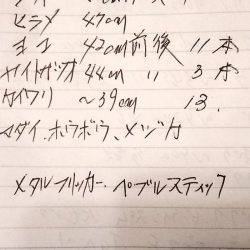 ヒラメ 47cm
ヨコ 42cm前後 11本
サイトウガツオ 44cm 〃 3本
カイワリ ~39cm 13.
マダイ.ホウボウ、メジカ
メタルフリッカー.ペブルスティック